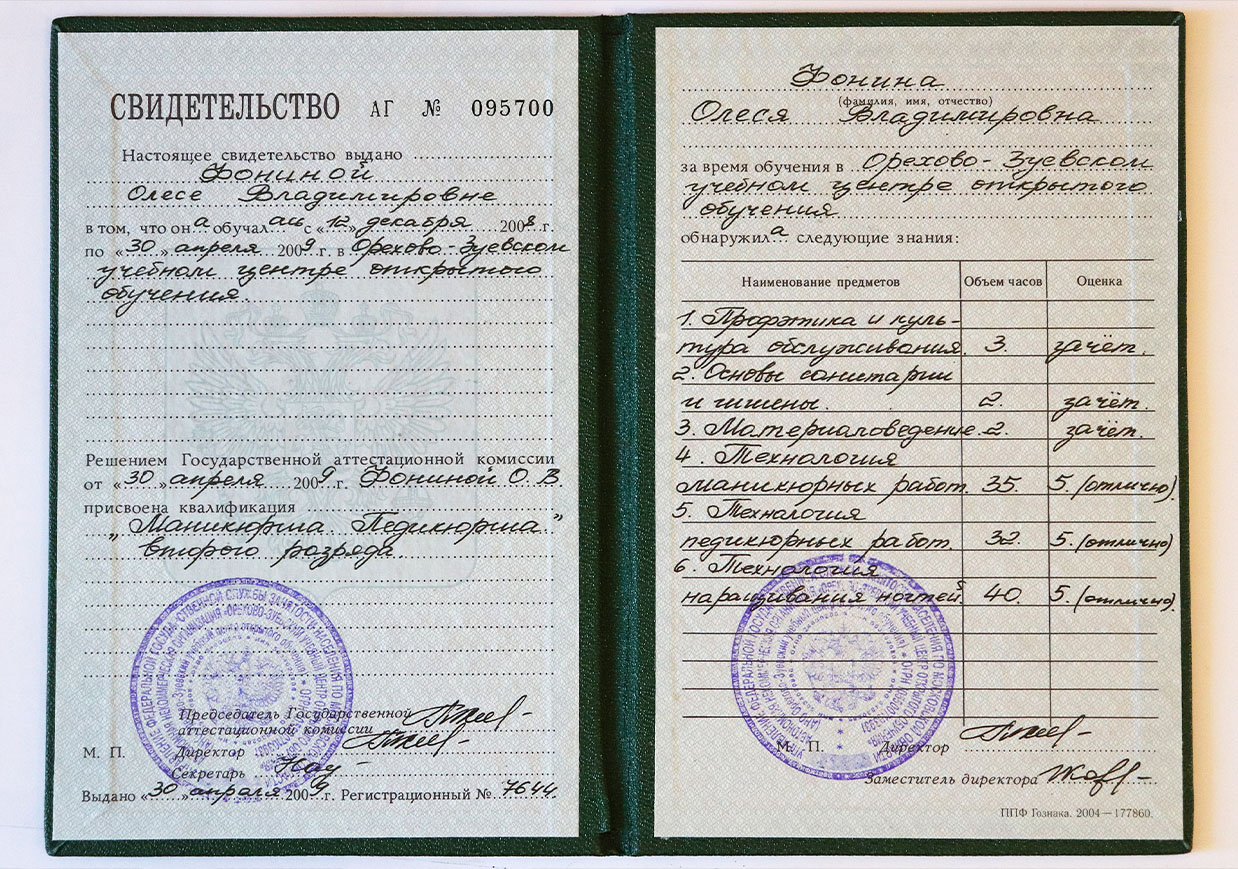 СВИДЕТЕЛЬСТВО АГ № 095700
Настоящее свидетельство выдано
Фониной
Олесе Владимировне
в том, что она обучалась с «12» декабря 2008 г.
по «30» апреля 2009 г. в Орехово-Зуевском
учебном центре открытого
обучения.
Решением Государственной аттестационной комиссии
от «30» апреля 2009 г. Фониной О. В.
присвоена квалификация
„Маникюрша. Педикюрша.”
второго разряда
Председатель Государственной
аттестационной комиссии
М. П. Директор
Секретарь
Выдано «30» апреля 2009 г. Регистрационный № 7644
Фонина
(фамилия, имя, отчество)
Олеся Владимировна
за время обучения в Орехово-Зуевском
учебном центре открытого
обучения
обнаружила следующие знания:
Наименование предметов Объем часов Оценка
1. Профэтика и куль-
тура обслуживания. 3. зачёт.
2. Основы санитарии
и гигиены. 2. зачёт.
3. Материаловедение. 2. зачёт.
4. Технология
маникюрных работ. 35. 5. (отлично)
5. Технология
педикюрных работ. 32. 5. (отлично)
6. Технология
наращивания ногтей. 40. 5. (отлично)
М. П. Директор
Заместитель директора
ППФ Гознака. 2004—177860.